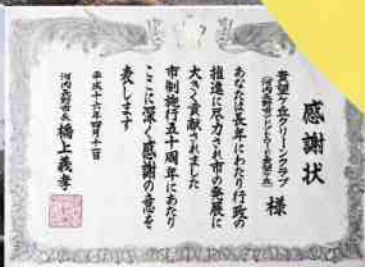 感謝状
貴望ケ丘クリーンクラブ
様
あなたは長年にわたり行政の
推進に尽力され市の発展に
大きく貢献されました
市制施行五十周年にあたり
ここに深く感謝の意を
表します
平成十六年四月十一日
河内長野市長 橋上義孝